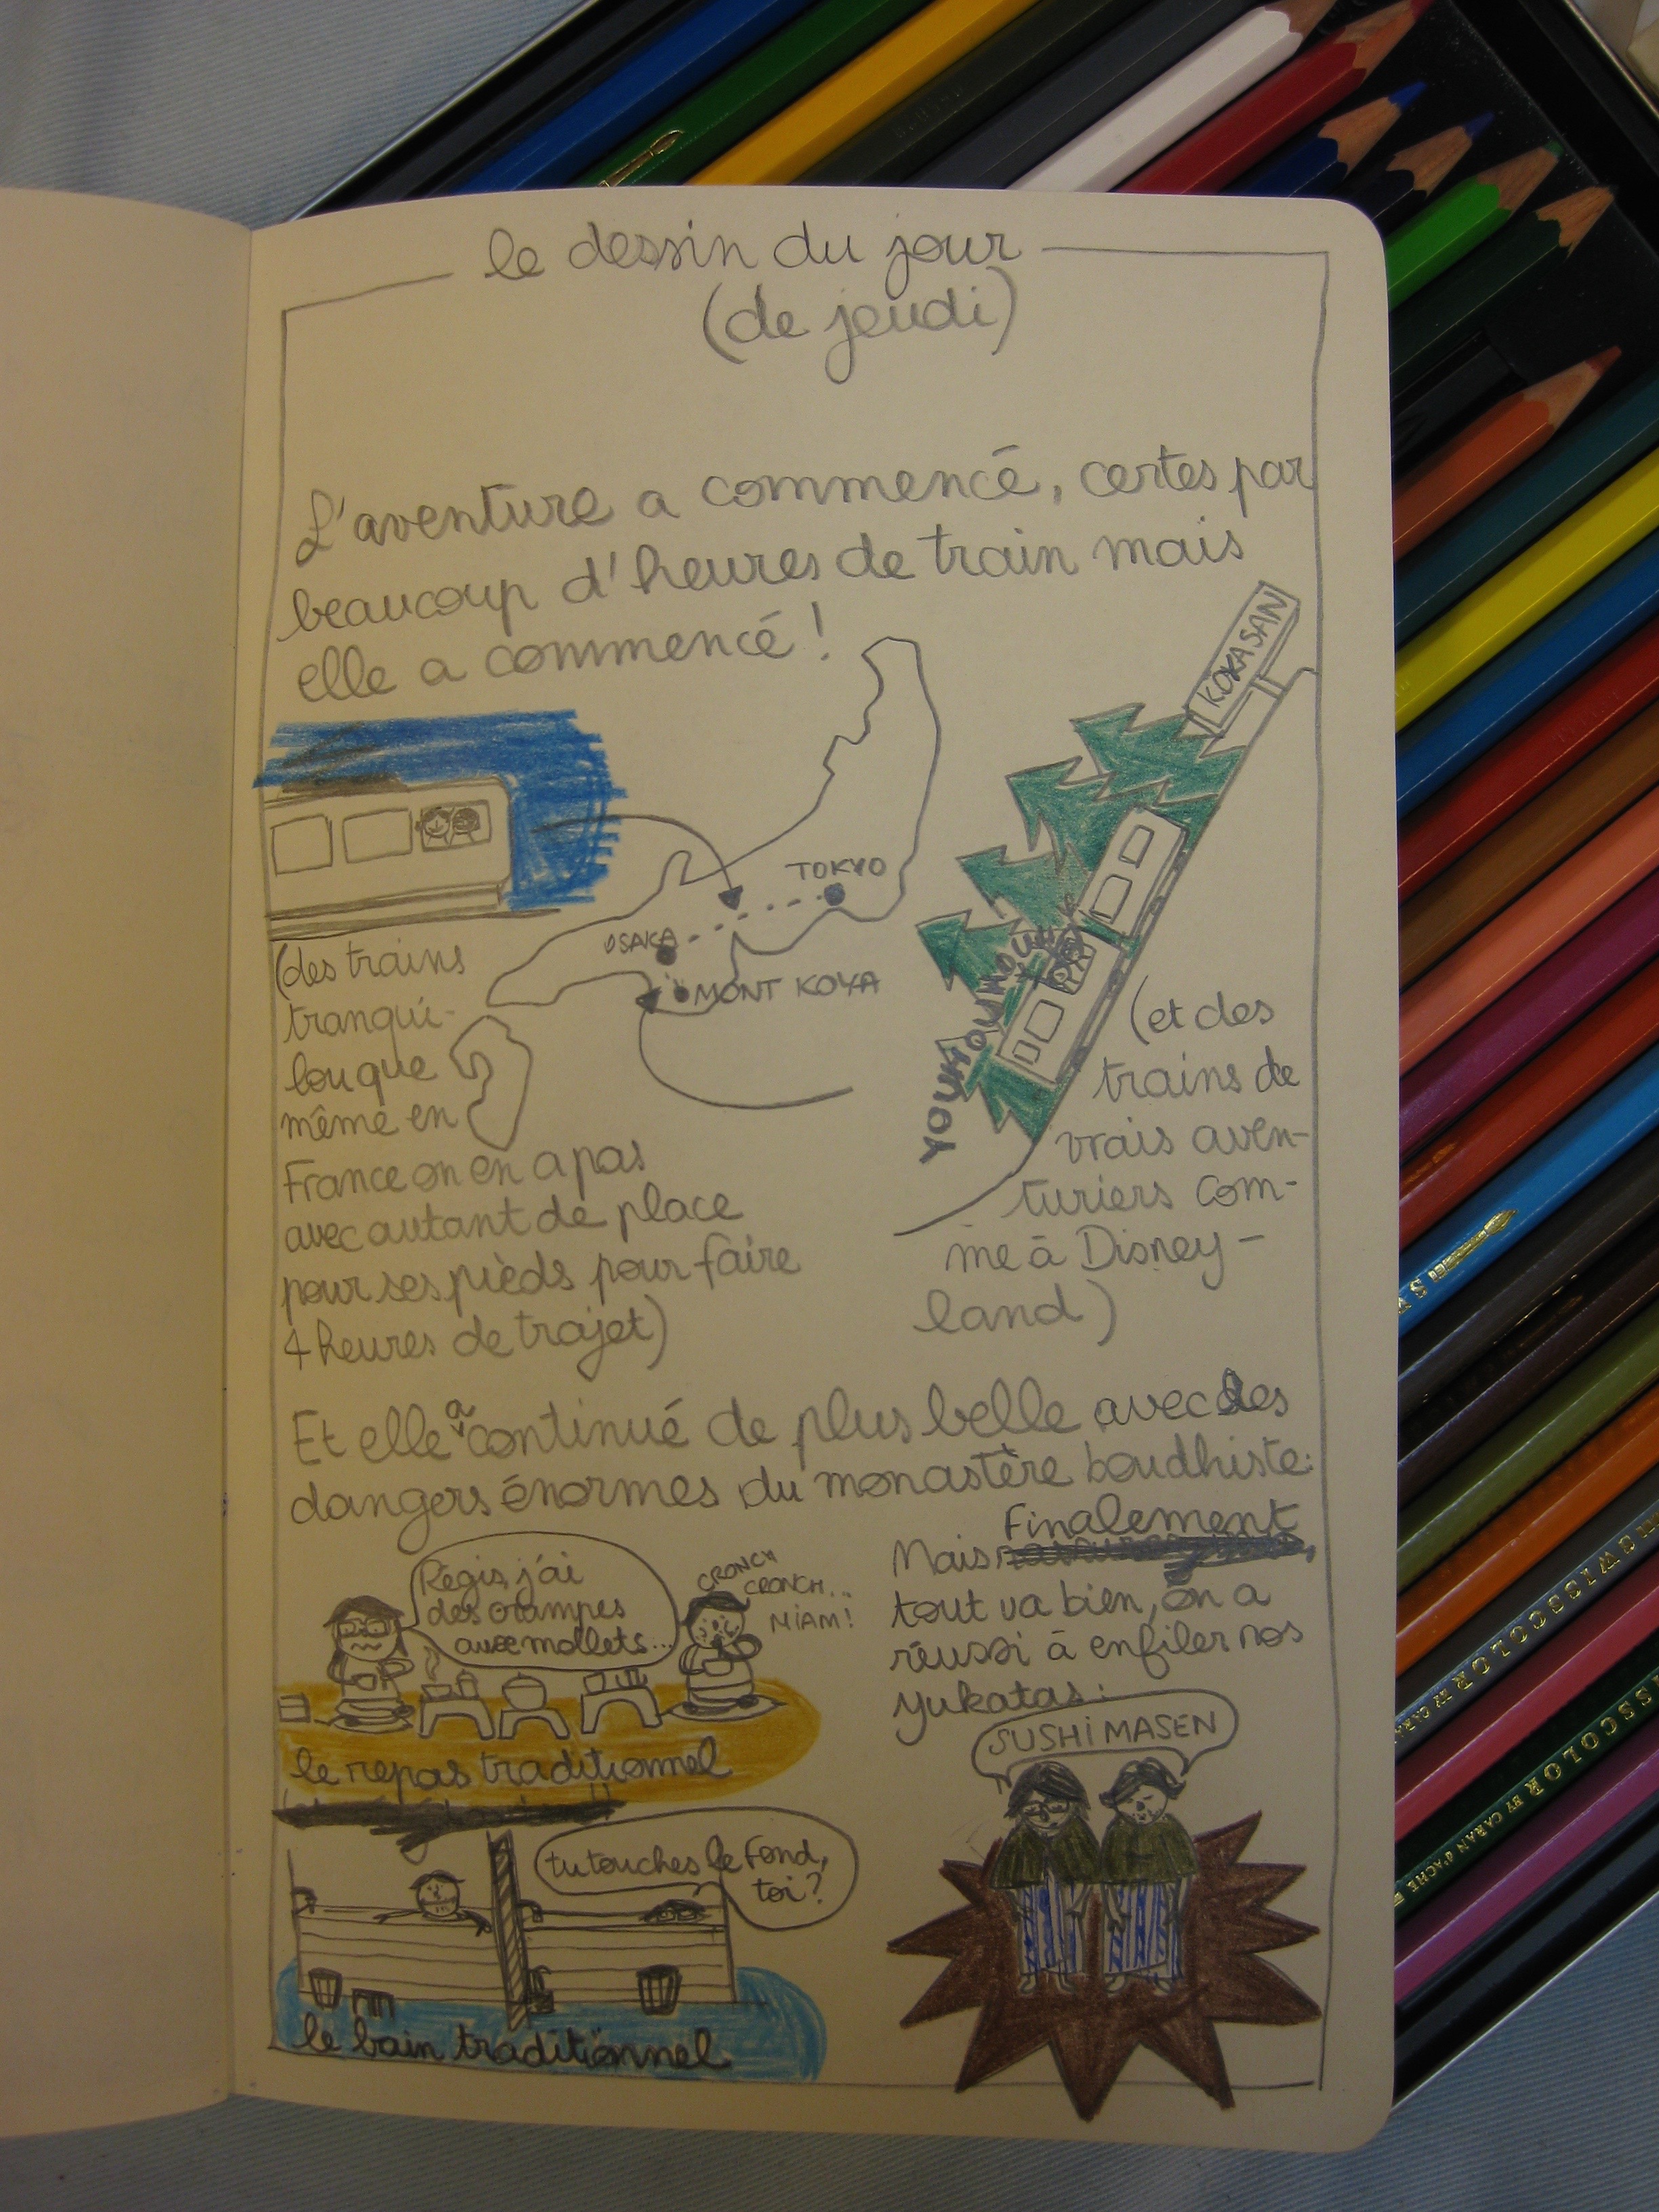 le dessin du jour
(de jeudi)
L'aventure a commencé, certes par
beaucoup d'heures de train mais
elle a commencé !
KOKASAN
TOKYO
OSAKA
MONT KOYA
(des trains
tranqui-
lou que
même en
France on en a pas
avec autant de place
pour ses pieds pour faire
4 heures de trajet)
(et des
trains de
vrais aven-
turiers com-
me à Disney-
land)
Et elle a continué de plus belle avec des
dangers énormes du monastère boudhiste:
Régis, j'ai
des crampes
aux mollets...
CRONCH
CRONCH...
MIAM!
le repas traditionnel
Mais Finalement,
tout va bien, on a
réussi à enfiler nos
yukatas:
SUSHIMASEN
tu touches le fond,
toi?
le bain traditionnel
SWISSCOLOR BY CARAN D'ACHE